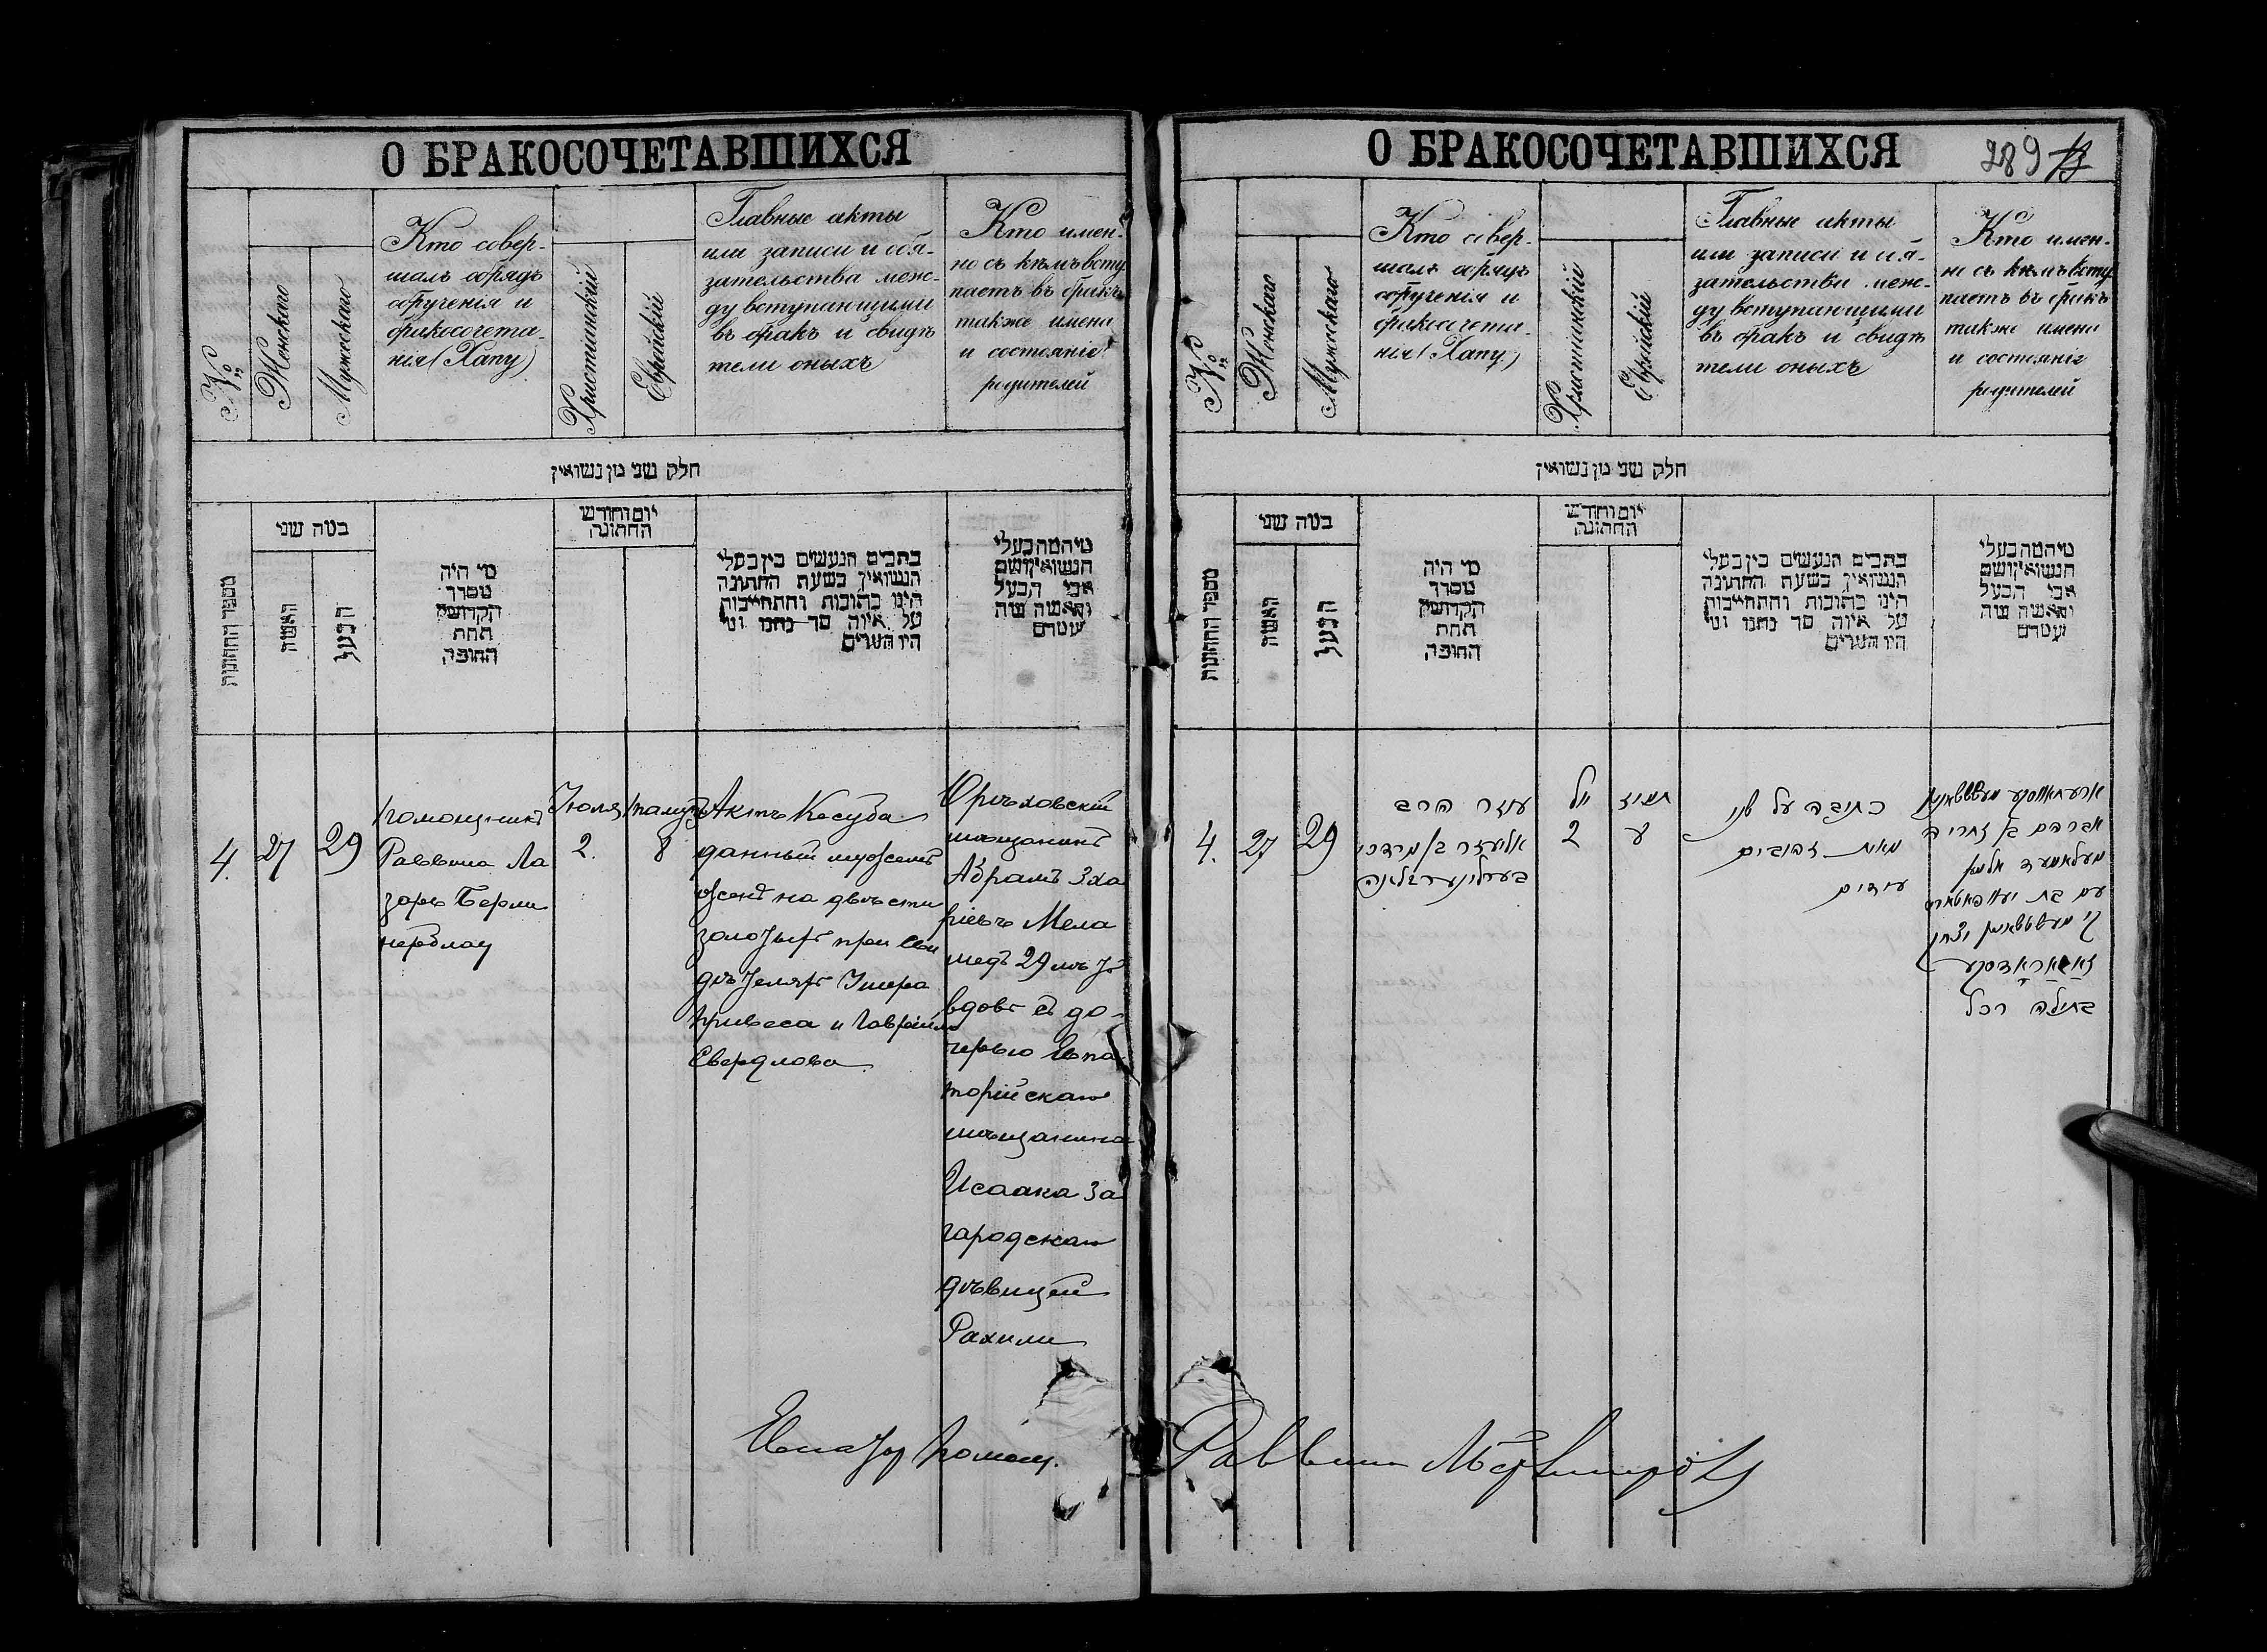 О БРАКОСОЧЕТАВШИХСЯ
№
Женскаго
Мужескаго
Кто совер-
шалъ обрядъ
обрученія и
бракосочета-
нія (Хапу)
Христіанскій
Еврейскій
Главные акты
или записи и обя-
зательства меж-
ду вступающими
въ бракъ и свидѣ
тели оныхъ
Кто имен-
но съ кѣмъ всту
паетъ въ бракъ
также имена
и состояніе
родителей
חלק שני מן נשואין
מספר החתונות
כמה שני
האשה
הבעל
מי היה
מסדר
הקדושין
תחת
החופה
יום וחודש
החתונה
כתבים הנעשים בין בעלי
הנשואין בשעת החתונה
היינו כתובות והתחייבות
על איזה סך נתנו ומי
היו העדים
מי המה בעלי
הנשואין ושם
אבי הבעל
והאשה ומה
מעמדם
4.
27
29
Помощникъ
Раввина Ла
заръ Берли
нерблау
Іюля
2.
8
Актъ Кесуба
данный мужемъ
женѣ на двѣсти
золотыхъ при сви
дѣтеляхъ
и
Свердлова
Орѣховскій
мѣщанинъ
Абрамъ Зха
ріевъ Мела
медъ 29 лѣтъ
вдовъ съ до-
черью Евпа
торійскаго
мѣщанина
Исаака За
городскаго
дѣвицей
Рахили
помощ.
О БРАКОСОЧЕТАВШИХСЯ
289
№
Женскаго
Мужескаго
Кто совер-
шалъ обрядъ
обрученія и
бракосочета-
нія (Хапу)
Христіанскій
Еврейскій
Главные акты
или записи и обя-
зательства меж-
ду вступающими
въ бракъ и свидѣ
тели оныхъ
Кто имен-
но съ кѣмъ всту
паетъ въ бракъ
также имена
и состояніе
родителей
חלק שני מן נשואין
מספר החתונות
כמה שני
האשה
הבעל
מי היה
מסדר
הקדושין
תחת
החופה
יום וחודש
החתונה
כתבים הנעשים בין בעלי
הנשואין בשעת החתונה
היינו כתובות והתחייבות
על איזה סך נתנו ומי
היו העדים
מי המה בעלי
הנשואין ושם
אבי הבעל
והאשה ומה
מעמדם
4.
27
29
עוזר הרב
אליעזר בן מרדכי
בערלינערבלויא
יול
2
תמוז
ח
כתובה על שני
מאות זהובים
עידים
אברהם בן זכריה
מעלאמעד אלמן
עם בת
יצחק
בתולה רחל
Раввина